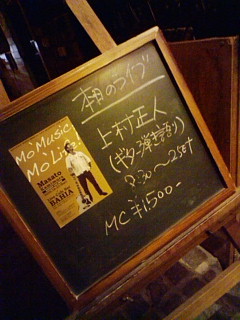 本日のライブ
Mo'Music,
Mo'Live.
Masato
BAHIA
上村正人
(ギター弾き語り)
8:30〜2set
MC ¥1,500-